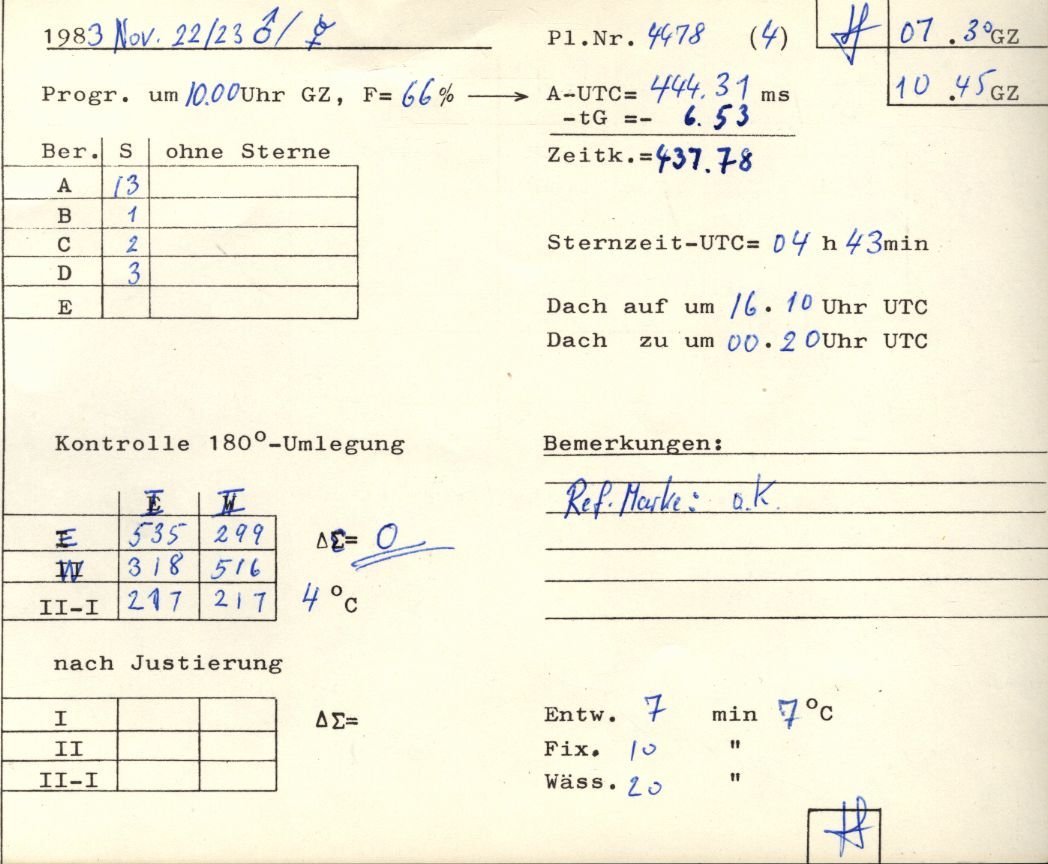 1983 Nov. 22/23 ♂/☿
Pl.Nr. 4478 (4)
07.30 GZ
10.45 GZ
Progr. um 10.00 Uhr GZ, F= 66% → A-UTC= 444.31 ms
-tG =- 6.53
Zeitk.= 437.78
Ber. S ohne Sterne
A 13
B 1
C 2
D 3
E
Sternzeit-UTC= 04 h 43min
Dach auf um 16.10 Uhr UTC
Dach zu um 00.20 Uhr UTC
Kontrolle 180°-Umlegung
I II
E 535 299 ΔΣ= 0
W 318 516
II-I 217 217 4 °C
Bemerkungen:
Ref. Marke: o.K.
nach Justierung
I ΔΣ=
II
II-I
Entw. 7 min 7 °C
Fix. 10 "
Wäss. 20 "